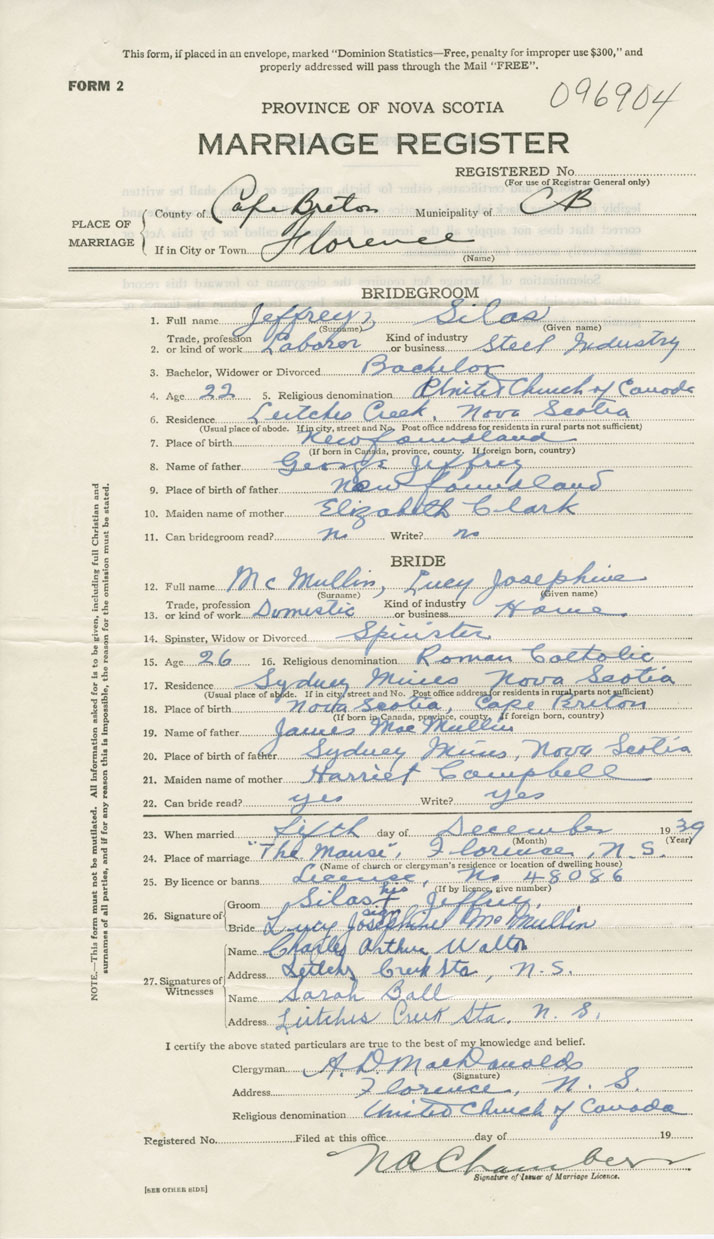 This form, if placed in an envelope, marked "Dominion Statistics—Free, penalty for improper use $300," and
properly addressed will pass through the Mail "FREE".
FORM 2
096904
PROVINCE OF NOVA SCOTIA
MARRIAGE REGISTER
REGISTERED No.
(For use of Registrar General only)
PLACE OF MARRIAGE
County of Cape Breton Municipality of CB
If in City or Town Florence
(Name)
BRIDEGROOM
1. Full name Jeffrey, Silas
(Surname) (Given name)
2. Trade, profession or kind of work Laborer Kind of industry or business Steel Industry
3. Bachelor, Widower or Divorced Bachelor
4. Age 22 5. Religious denomination United Church of Canada
6. Residence Leitches Creek, Nova Scotia
(Usual place of abode. If in city, street and No. Post office address for residents in rural parts not sufficient)
7. Place of birth Newfoundland
(If born in Canada, province, county. If foreign born, country)
8. Name of father George Jeffrey
9. Place of birth of father Newfoundland
10. Maiden name of mother Elizabeth Clark
11. Can bridegroom read? no Write? no
BRIDE
12. Full name McMullin, Lucy Josephine
(Surname) (Given name)
13. Trade, profession or kind of work Domestic Kind of industry or business Home
14. Spinster, Widow or Divorced Spinster
15. Age 26 16. Religious denomination Roman Catholic
17. Residence Sydney Mines Nova Scotia
(Usual place of abode. If in city, street and No. Post office address for residents in rural parts not sufficient)
18. Place of birth Nova Scotia, Cape Briton
(If born in Canada, province, county. If foreign born, country)
19. Name of father James MacMullin
20. Place of birth of father Sydney Mines, Nova Scotia
21. Maiden name of mother Harriet Campbell
22. Can bride read? yes Write? yes
23. When married fifth day of December 1939
(Month) (Year)
24. Place of marriage "The Manse", Florence, N.S.
(Name of church or clergyman's residence or location of dwelling house)
25. By licence or banns License, No 48086
(If by licence, give number)
26. Signature of Groom Silas his + sign Jeffrey.
Bride Lucy Josephine McMullin
27. Signatures of Witnesses
Name Charles Arthur Walton
Address Leitches Creek Sta, N.S.
Name Sarah Ball
Address Leitches Creek Sta. N. S.
I certify the above stated particulars are true to the best of my knowledge and belief.
Clergyman A. D. MacDonald
(Signature)
Address Florence, N. S.
Religious denomination United Church of Canada
Registered No. Filed at this office day of 19
Chambers
Signature of Issuer of Marriage Licence.
[SEE OTHER SIDE]
NOTE.—This form must not be mutilated. All information asked for is to be given, including full Christian and
surnames of all parties, and if for any reason this is impossible, the reason for the omission must be stated.